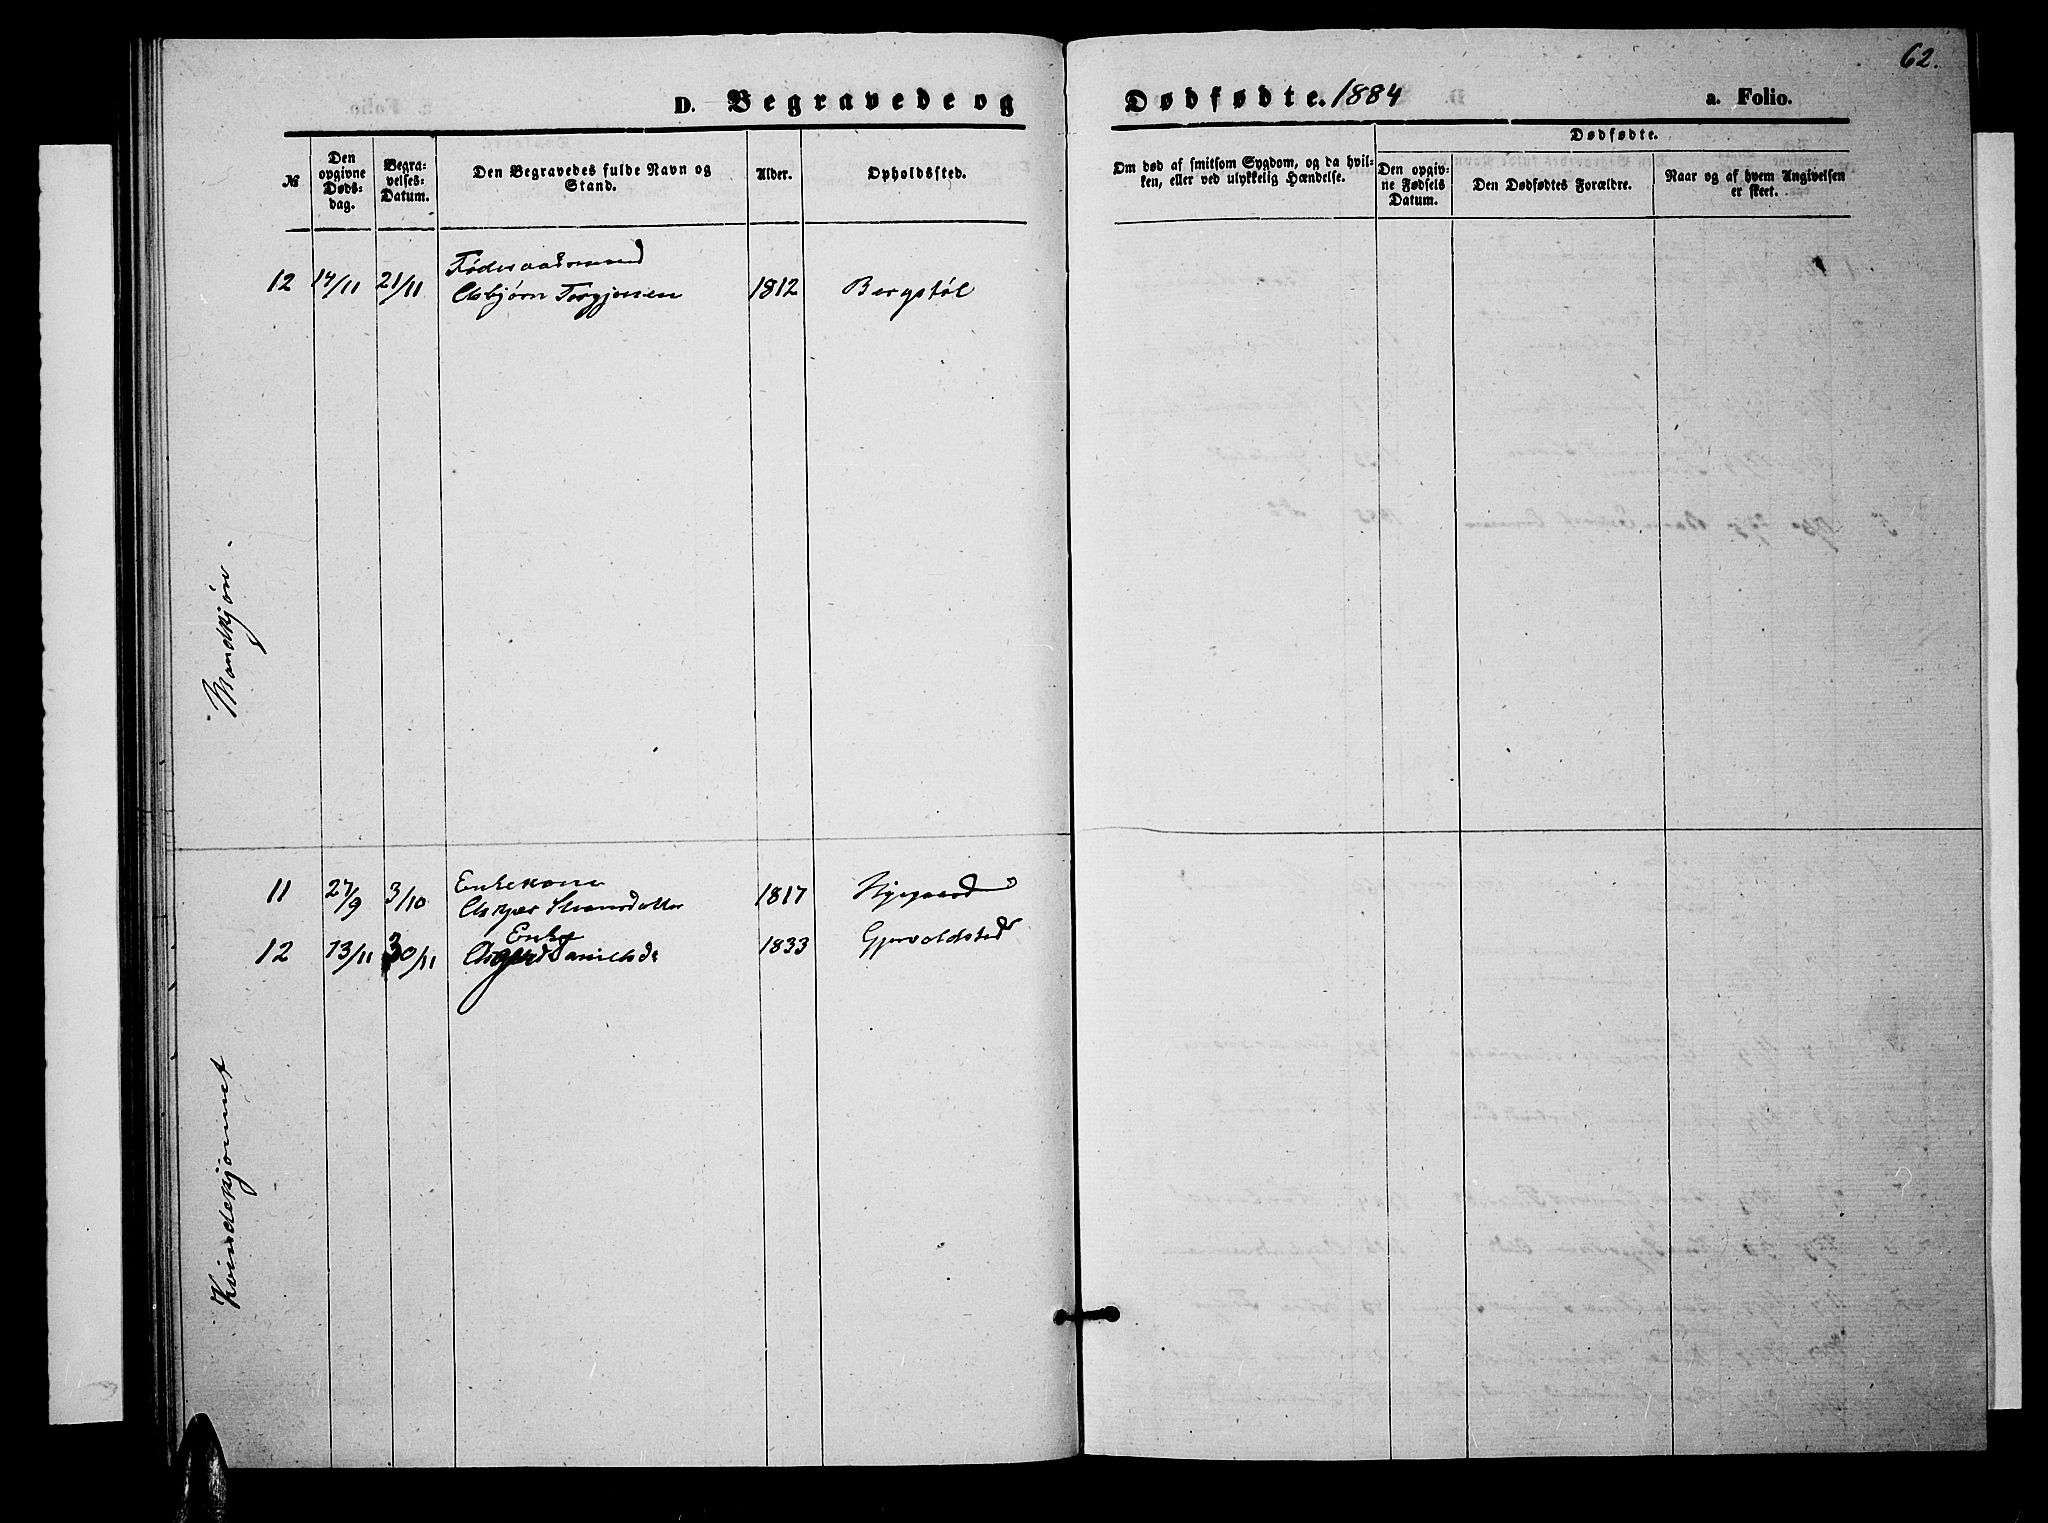 62.
D. Begravede og Dødfødte. 1884 a. Folio.
Dødfødte.
№
Den opgivne Døds- dag.
Begra- velses- Datum.
Den Begravedes fulde Navn og Stand.
Alder.
Opholdssted.
Om død af smitsom Sygdom, og da hvil- ken, eller ved ulykkelig Hændelse.
Den opgiv- ne Fødsels Datum.
Den Dødfødtes Forældre.
Naar og af hvem Angivelsen er skeet.
Mandkjøn.
Føderaadsmand
12 14/11 21/11 Asbjørn Torgjussen 1812 Bergstøl
Kvindekjønnet
Enkekone
11 27/9 3/10 1817
Enke
12 13/11 30/11 Danielsd. 1833